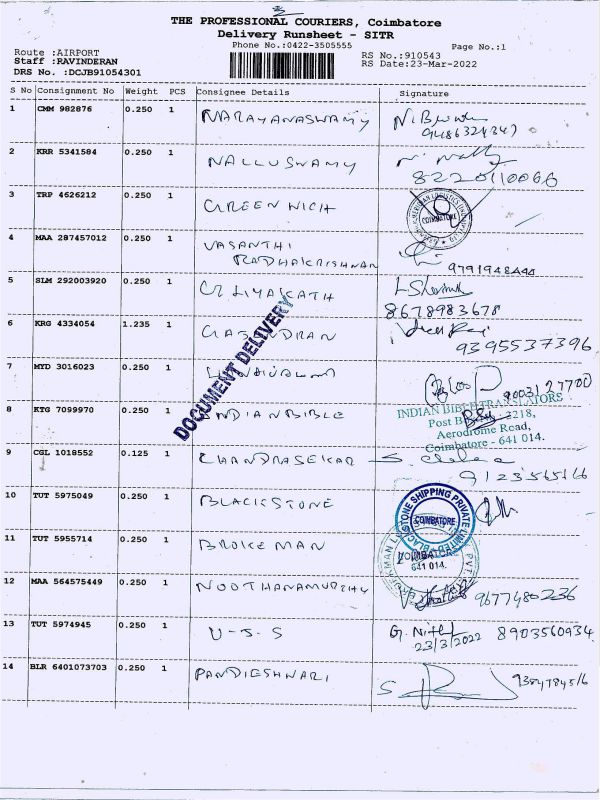 3
THE PROFESSIONAL COURIERS, Coimbatore
Delivery Runsheet - SITR
Phone No.:0422-3505555
Page No.:1
Route :AIRPORT
RS No.:910543
Staff :RAVINDERAN
RS Date:23-Mar-2022
DRS No. :DCJB91054301
S No Consignment No Weight PCS Consignee Details Signature
1 CMM 982876 0.250 1 NARAYANASWAMY
2 KRR 5341584 0.250 1 NALLUSWAMY
8220110066
3 TRP 4626212 0.250 1 GREENWICH
COIMBATORE
4 MAA 287457012 0.250 1 VASANTHI
RADHAKRISHNAN
5 SLM 292003920 0.250 1
8678983678
6 KRG 4334054 1.235 1
9395537396
DOCUMENT DELIVERY
7 MYD 3016023 0.250 1
9003127700
8 KTG 7099970 0.250 1 INDIAN BIBLE
INDIAN BIBLE TRANSLATORS
Post 2218,
Aerodrome Road,
Coimbatore - 641 014.
9 CGL 1018552 0.125 1 CHANDRASEKAR
10 TUT 5975049 0.250 1 BLACKSTONE
BLACKSTONE SHIPPING PRIVATE LIMITED
COIMBATORE
11 TUT 5955714 0.250 1 BROKEMAN
COIMBATORE
641 014.
12 MAA 564575449 0.250 1 NOOTHANAMURTHY
9677480236
13 TUT 5974945 0.250 1 U-S-S
G. Nithi 8903560934
23/3/2022
14 BLR 6401073703 0.250 1 PANDIESHWARI